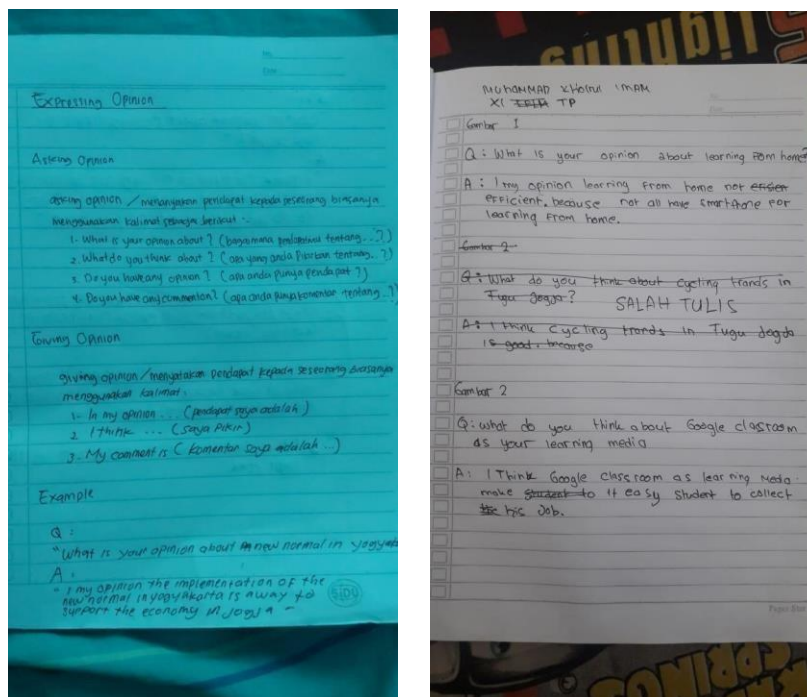 No.
Date
Expressing Opinion
Asking Opinion
asking opinion / menanyakan pendapat kepada seseorang biasanya
menggunakan kalimat sebagai berikut :.
1. What is your opinion about ? (bagaimana pendapatmu tentang...?)
2. What do you think about ? (apa yang anda pikirkan tentang...?)
3. Do you have any opinion ? (apa anda punya pendapat ?)
4. Do you have any commenton? (apa anda punya komentar tentang...?)
Giving Opinion
giving opinion / menyatakan pendapat kepada seseorang biasanya
menggunakan kalimat :
1. In my opinion ... (pendapat saya adalah )
2. I think ... (saya pikir)
3. My comment is ( komentar saya adalah ...)
Example
Q :
"What is your opinion about new normal in yogya
A :
" I my opinion the implementation of the
new normal in yogyakarta is away to
support the economy in jogja "
SIDU
Lightning
MUHAMMAD KHOIRUL IMAM
XI TP
Gambar 1
Q : What is your opinion about learning From home?
A : I my opinion learning From home not
efficient. because not all have smartfone For
learning From home.
Gambar 2
Q : What do you think about cycling trands in
Tugu Jogja ? SALAH TULIS
A : I think cycling trands in Tugu Jogja
is good. because
Gambar 2
Q : what do you think about Google classroom
as your learning media
A : I Think Google class room as lear ning Media.
make student to it easy student to collect
his Job.
SPRINGS